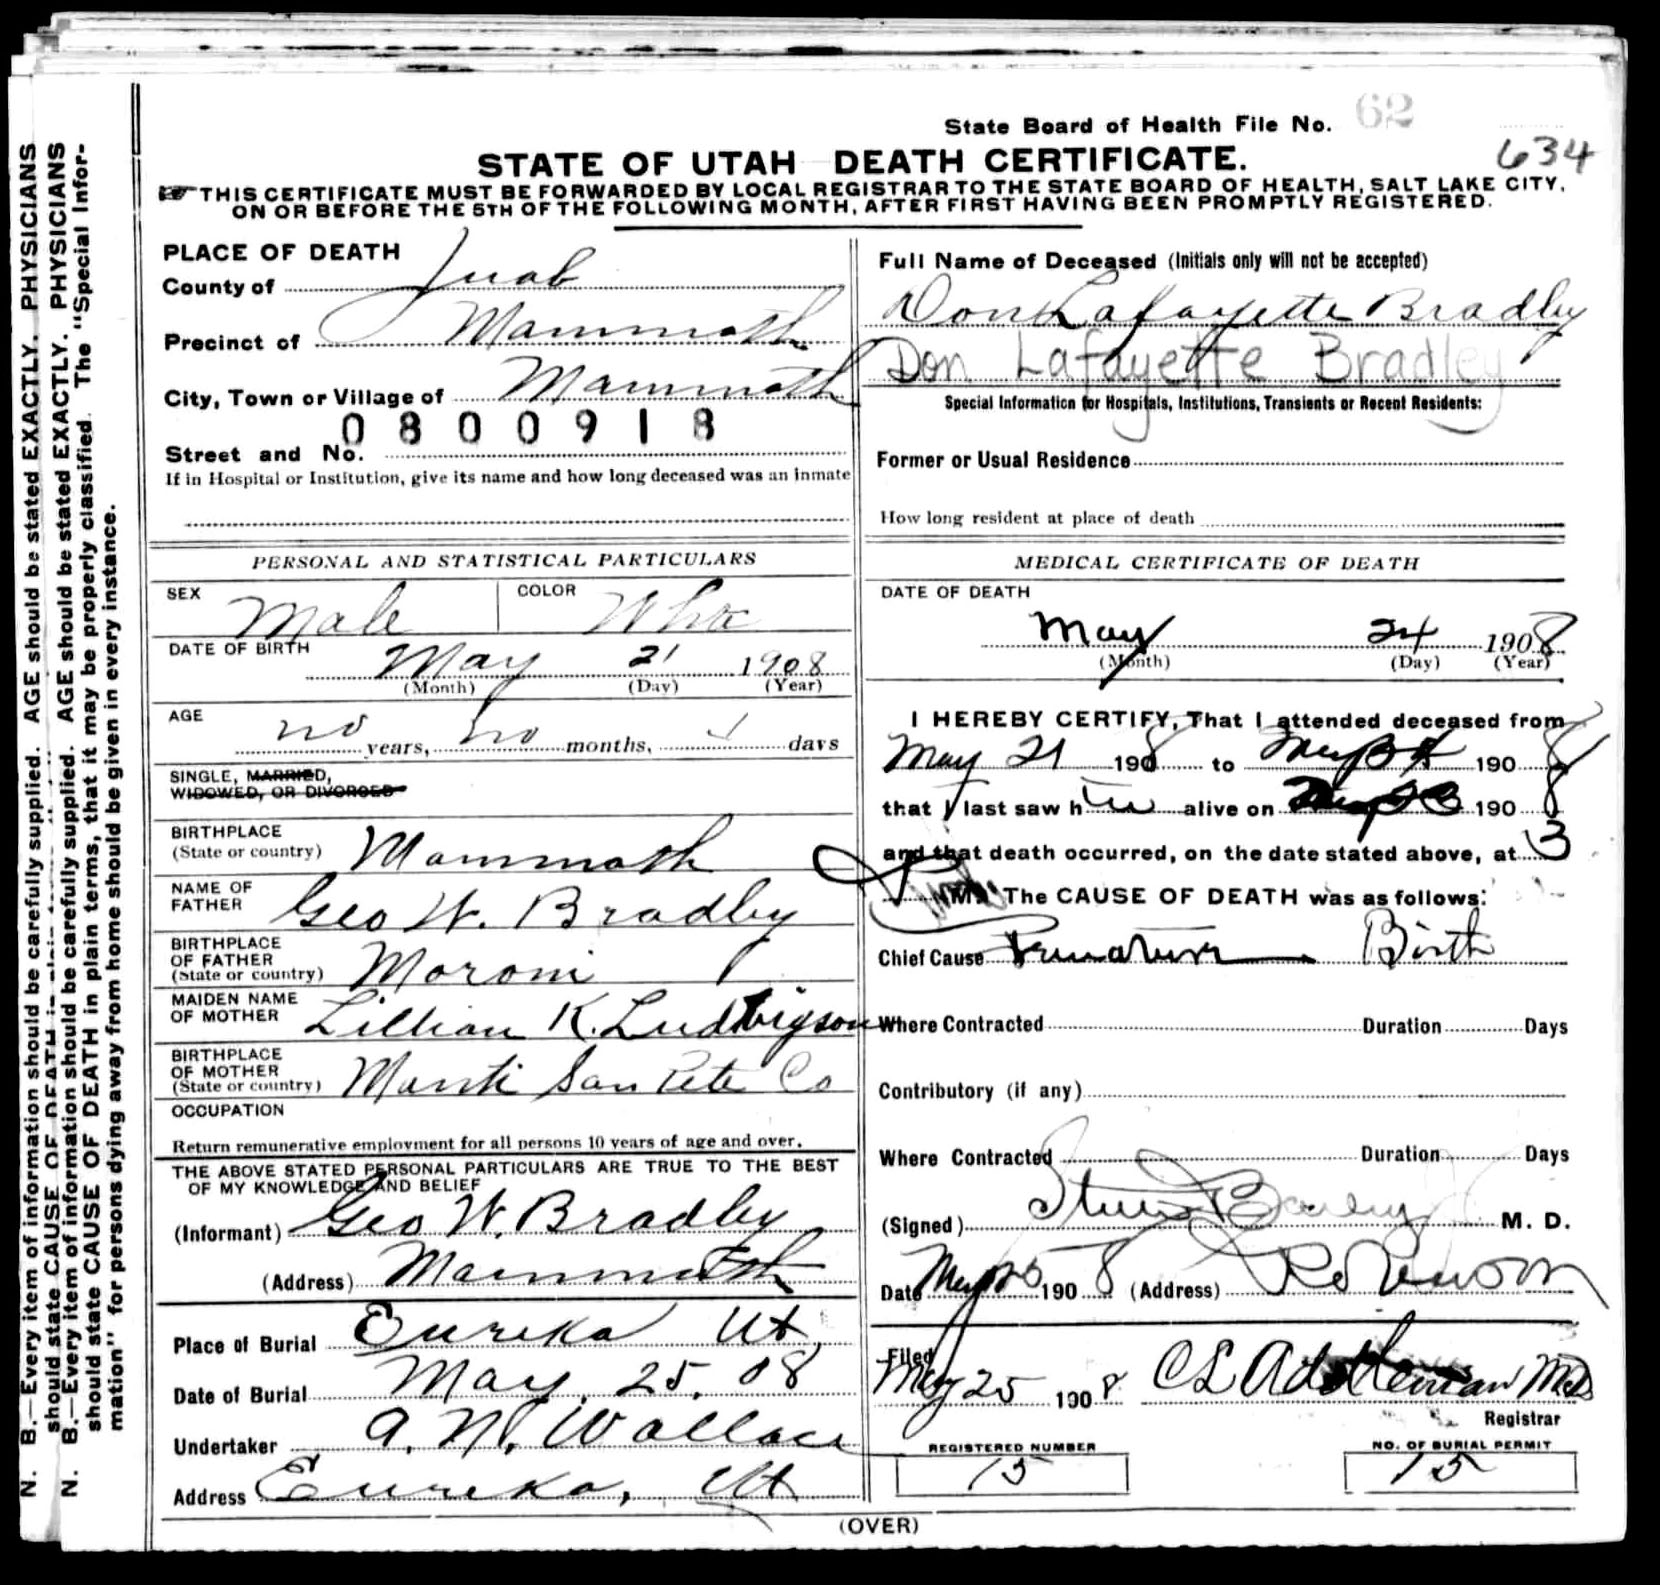 State Board of Health File No. 62
634
STATE OF UTAH DEATH CERTIFICATE.
THIS CERTIFICATE MUST BE FORWARDED BY LOCAL REGISTRAR TO THE STATE BOARD OF HEALTH, SALT LAKE CITY,
ON OR BEFORE THE 5TH OF THE FOLLOWING MONTH, AFTER FIRST HAVING BEEN PROMPTLY REGISTERED.
PLACE OF DEATH
County of Juab
Precinct of Mammoth
City, Town or Village of Mammoth
0800918
Street and No.
If in Hospital or Institution, give its name and how long deceased was an inmate
Full Name of Deceased (Initials only will not be accepted)
Don Lafayette Bradley
Don Lafayette Bradley
Special Information for Hospitals, Institutions, Transients or Recent Residents:
Former or Usual Residence
How long resident at place of death
PERSONAL AND STATISTICAL PARTICULARS
SEX Male COLOR White
DATE OF BIRTH May 21 1908
(Month) (Day) (Year)
AGE no years, no months, days
SINGLE, MARRIED,
WIDOWED, OR DIVORCED
BIRTHPLACE
(State or country) Mammoth
NAME OF
FATHER Geo W. Bradley
BIRTHPLACE
OF FATHER
(State or country) Moroni
MAIDEN NAME
OF MOTHER Lillian K. Ludwigson
BIRTHPLACE
OF MOTHER
(State or country) Manti San Pete Co
OCCUPATION
Return remunerative employment for all persons 10 years of age and over.
THE ABOVE STATED PERSONAL PARTICULARS ARE TRUE TO THE BEST
OF MY KNOWLEDGE AND BELIEF
(Informant) Geo W. Bradley
(Address) Mammoth
Place of Burial Eureka Ut
Date of Burial May. 25. 08
Undertaker A. N. Wallace
Address Eureka, Ut
MEDICAL CERTIFICATE OF DEATH
DATE OF DEATH
May 24 1908
(Month) (Day) (Year)
I HEREBY CERTIFY, That I attended deceased from
May 21 1908 to May 190 8
that I last saw h alive on May 23 190 8
and that death occurred, on the date stated above, at 3
M. The CAUSE OF DEATH was as follows:
Chief Cause Premature Birth
Where Contracted Duration Days
Contributory (if any)
Where Contracted Duration Days
(Signed) Steele Bailey M. D.
Date May 25 190 8 (Address) Robinson
Filed
May 25 190 8
Registrar
REGISTERED NUMBER
15
NO. OF BURIAL PERMIT
15
(OVER)
N. B.—Every item of information should be carefully supplied. AGE should be stated EXACTLY. PHYSICIANS
should state CAUSE OF DEATH in plain terms
N. B.—Every item of information should be carefully supplied. AGE should be stated EXACTLY. PHYSICIANS
should state CAUSE OF DEATH in plain terms, that it may be properly classified. The "Special Infor-
mation" for persons dying away from home should be given in every instance.